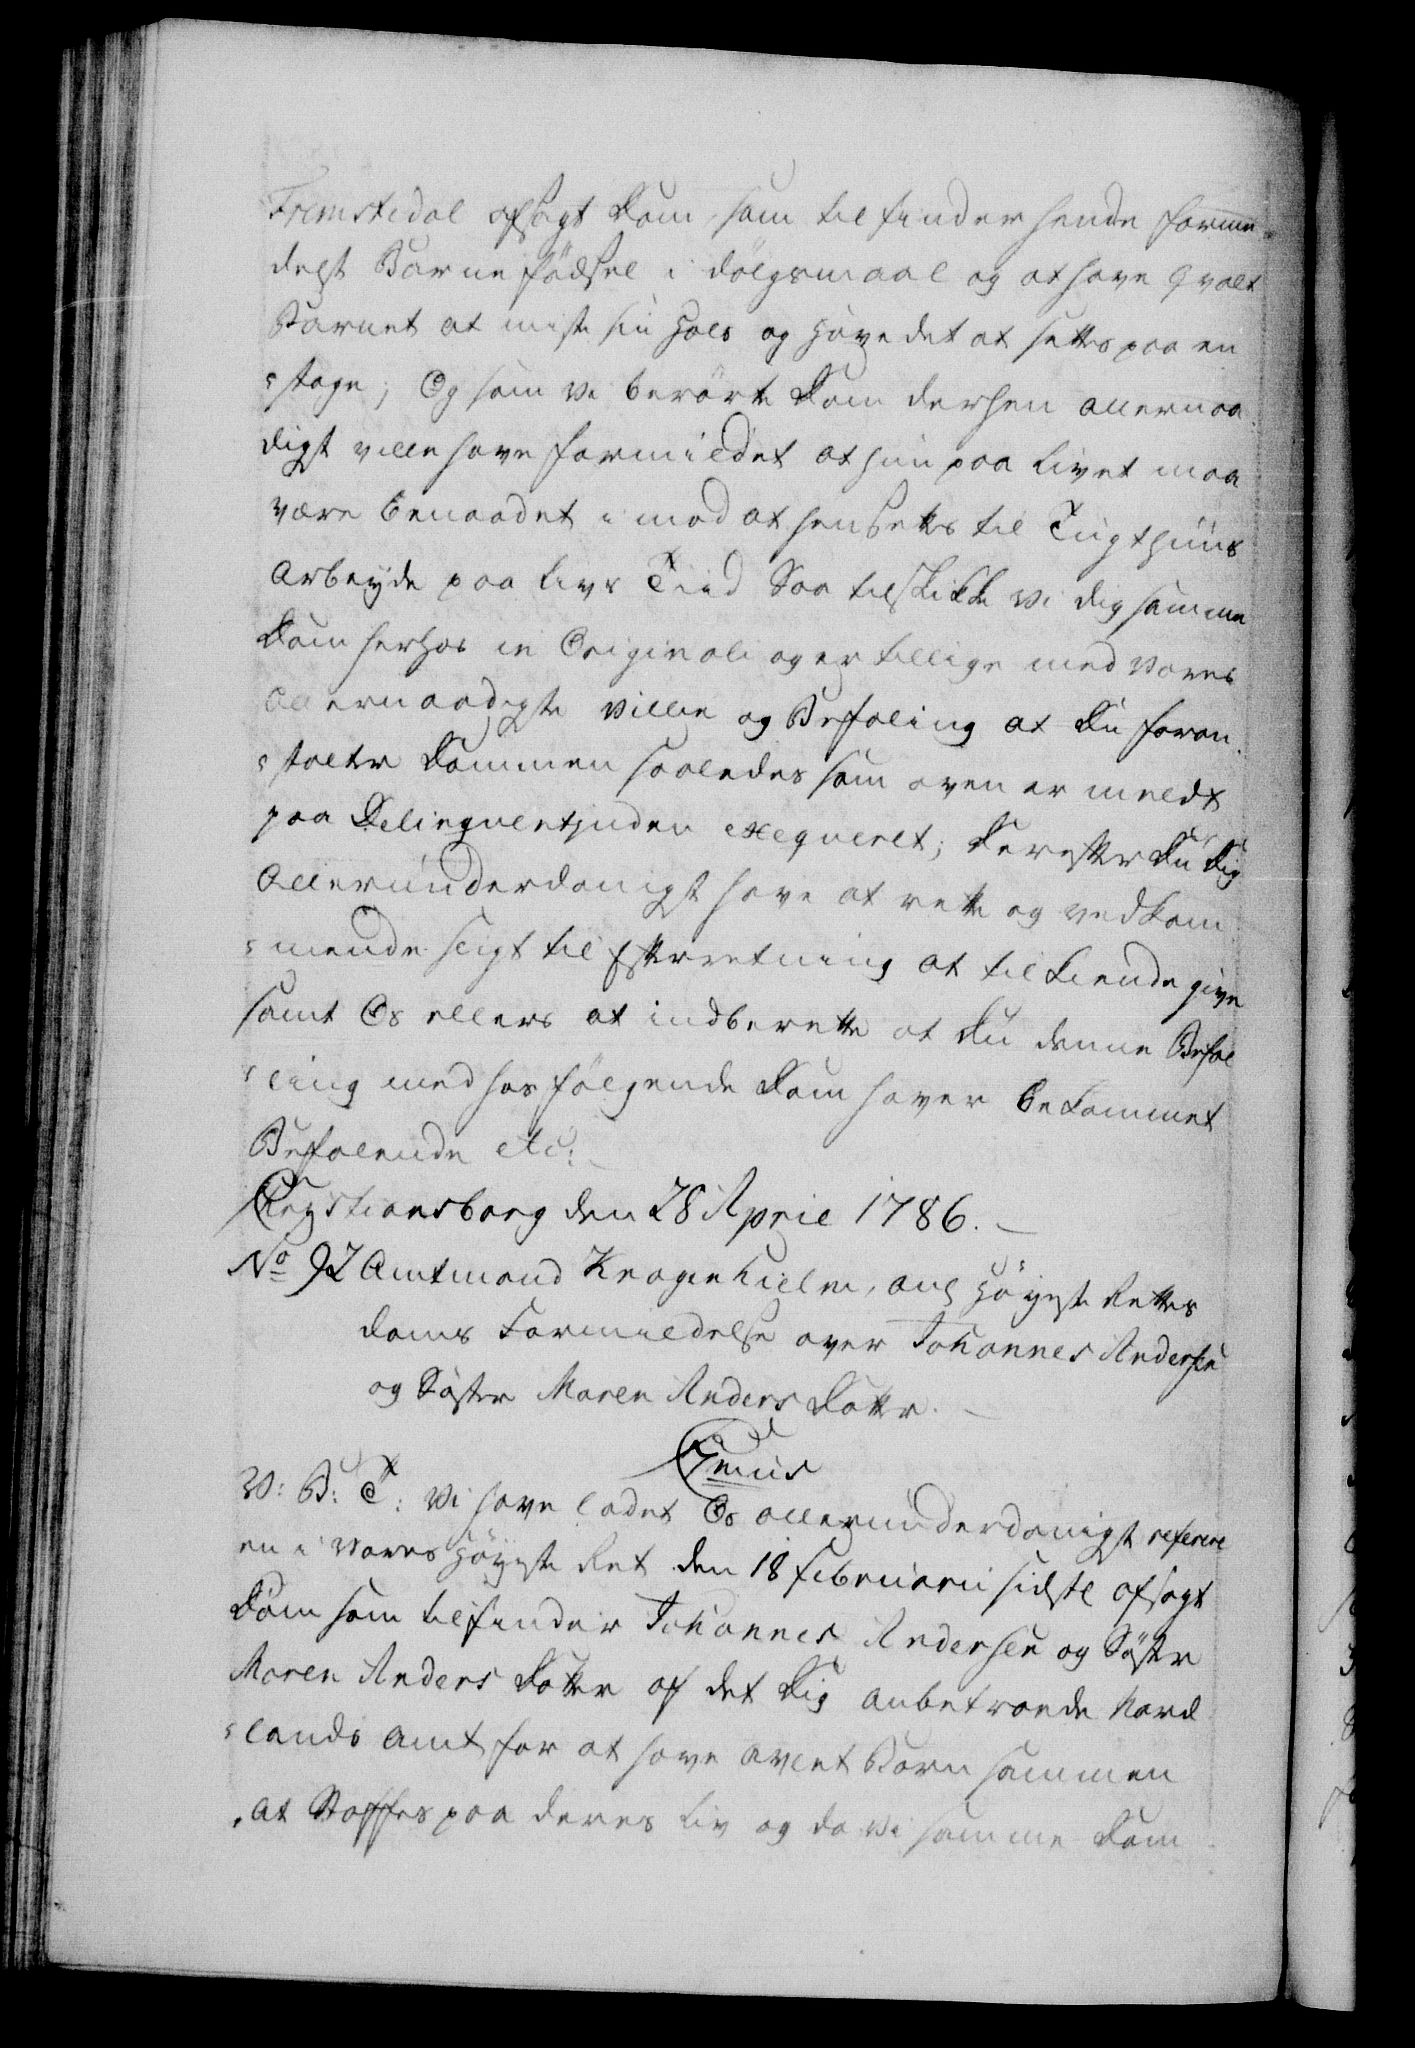 Fremstedal afsagt Dom, som tilfinder hende forme-
delst Barne fødsel i dølgsmaal og at have qvalt
Barnet at miste sin Hals og Hovedet at settes paa en
stage; Og som Vi berørte Dom derhen allernaa
digst ville have formildet at hun paa Livet maa
være benaadet imod at hensettes til Tugthuus
Arbeyde paa Livs Tiid Saa tilskikke Vi dig samme
Dom herhos in Originali og er tillige med Vores
Allernaadigste Villie og Befaling at Du foran-
stalter Dommen saaledes som oven er meldt
paa Delinqventinden exeqveret; Derefter Du Dig
Allerunderdanigst have at rette og vedkom
mende sligt til Efterretning at tilkiende give
samt Os ellers at indberette at Du denne Befal
ling med hos følgende Dom haver bekommet
Befalende etc:
Christiansborg den 28 April 1786.
No 92 Amtmand Knagenhielm, ang Høyeste Rettes
Doms Formildelse over Johannes Andersen
og Søster Maren Anders Datter.
C7mus
V: B: T: Vi have ladet Os allerunderdanigst referere
en i Vores Høyeste Ret den 18 Februarii sidste afsagt
Dom som tilfinder Johannes Andersen og Søster
Maren Anders Datter af det Dig anbetroede Nord
lands Amt for at have avlet Barn sammen
at Straffes paa deres Liv og da Vi samme Dom